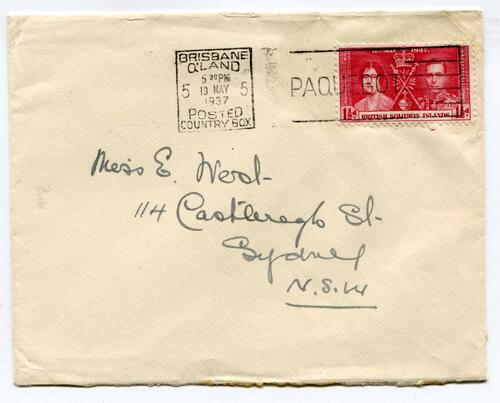 BRISBANE
Q'LAND
5 30PM
5 19 MAY 5
1937
POSTED
COUNTRY BOX
PAQUEBOT
MAY 1937.
1½d
BRITISH SOLOMON ISLANDS.
Miss E. West
114 Castlereagh St
Sydney
N.S.W